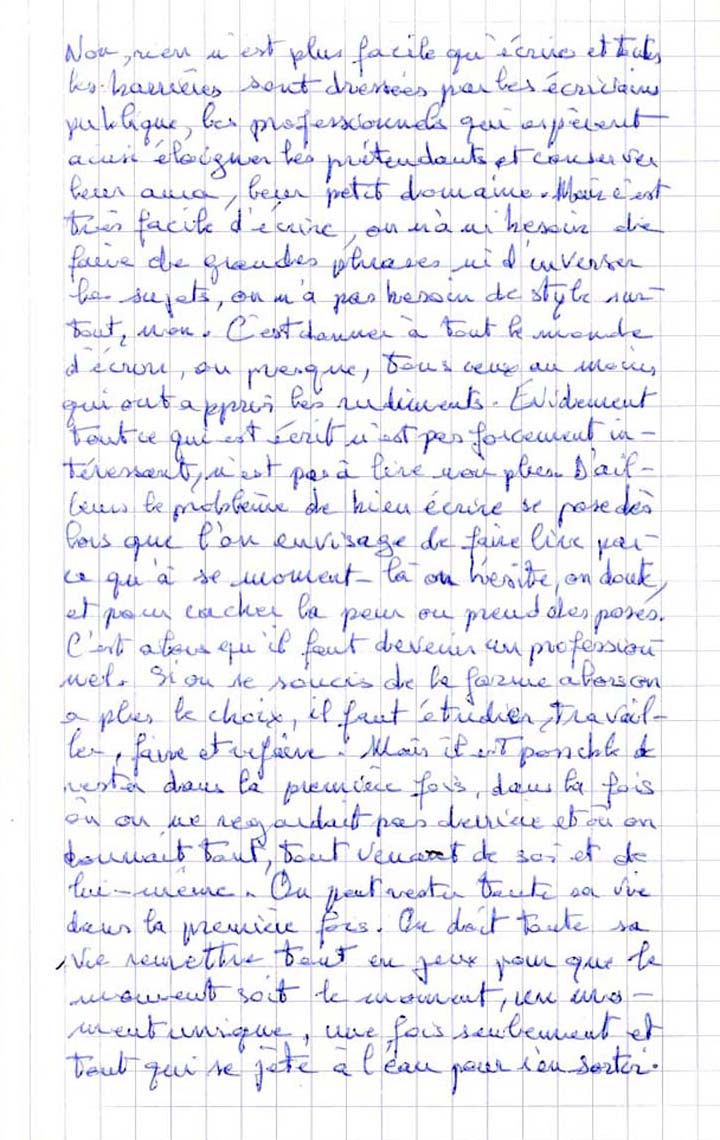 Non, rien n'est plus facile qu'écrire et toutes
les barrières sont dressées par les écrivains
publique, les professionnels qui espèrent
ainsi éloigner les prétendants et conserver
leur aura, leur petit domaine. Mais c'est
très facile d'écrire, on n'à ni besoin de
faire de grandes phrases ni d'inverser
les sujets, on n'a pas besoin de style sur-
tout, non. C'est donner à tout le monde
d'écrire, ou presque, tous ceux au moins
qui ont appris les rudiments. Évidement
tout ce qui est écrit n'est pas forcement in-
téressant, n'est pas à lire non plus. D'ail-
leurs le problème de bien écrire se pose dès
lors que l'on envisage de faire lire par-
ce qu'à se moment-là on hésite, on doute,
et pour cacher la peur on prend des poses.
C'est alors qu'il faut devenir un profession-
nel. Si on se soucis de la forme alors on
a plus le choix, il faut étudier, travail-
ler, faire et refaire. Mais il est possible de
rester dans la première fois, dans la fois
où on ne regardait pas derrière et où on
donnait tant, tout venant de soi et de
lui-même. On peut rester toute sa vie
dans la première fois. On doit toute sa
vie remettre tout en jeux pour que le
moment soit le moment, un mo-
ment unique, une fois seulement et
tout qui se jète à l'eau pour s'en sortir.